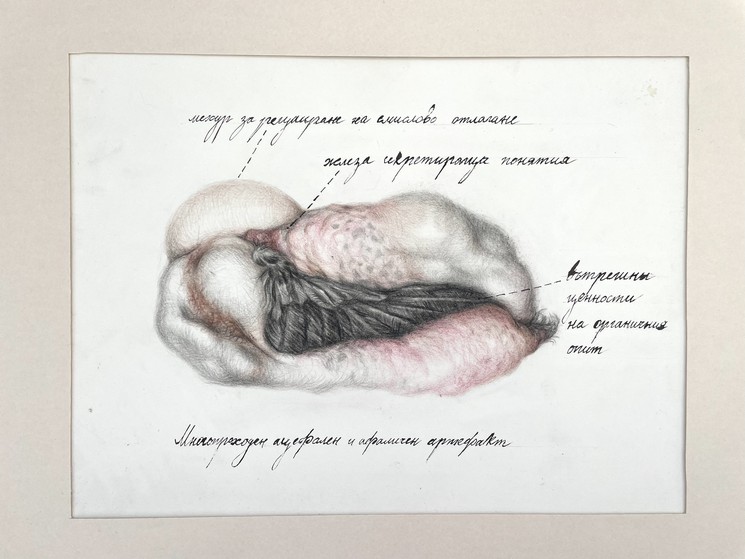 мехур за регулиране на смислово отлагане
жлеза секретираща понятия
вътрешни
ценности
на органичния
опит
Многопроходен ацефален и афаличен артефакт